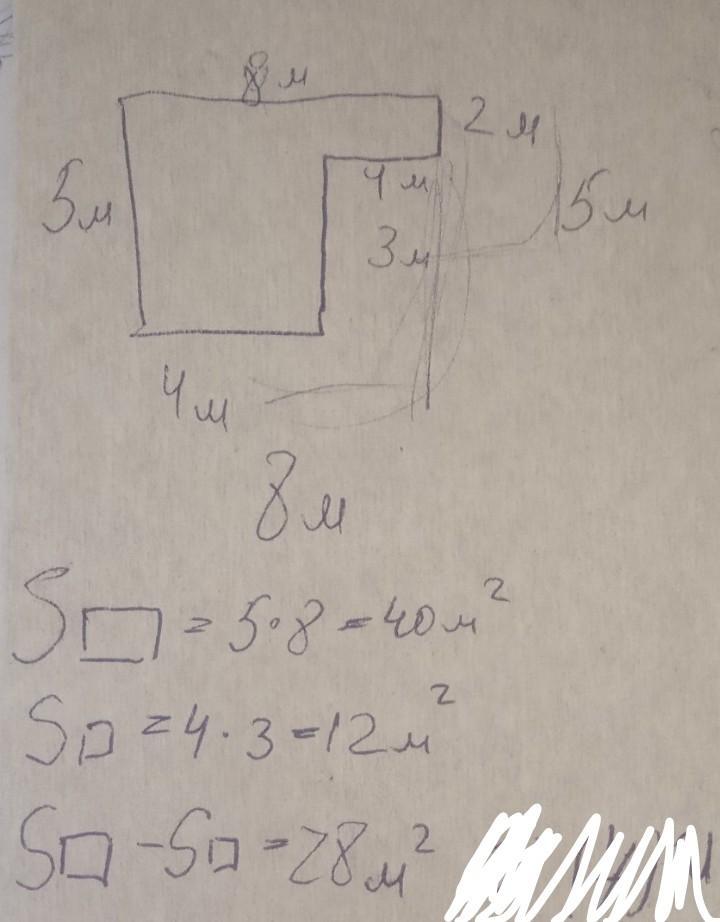 8 м
2 м
5м
4 м
5 м
3 м
4 м
8 м
S▭ = 5·8 = 40 м²
S□ = 4·3 = 12 м²
S▭ - S□ = 28 м²